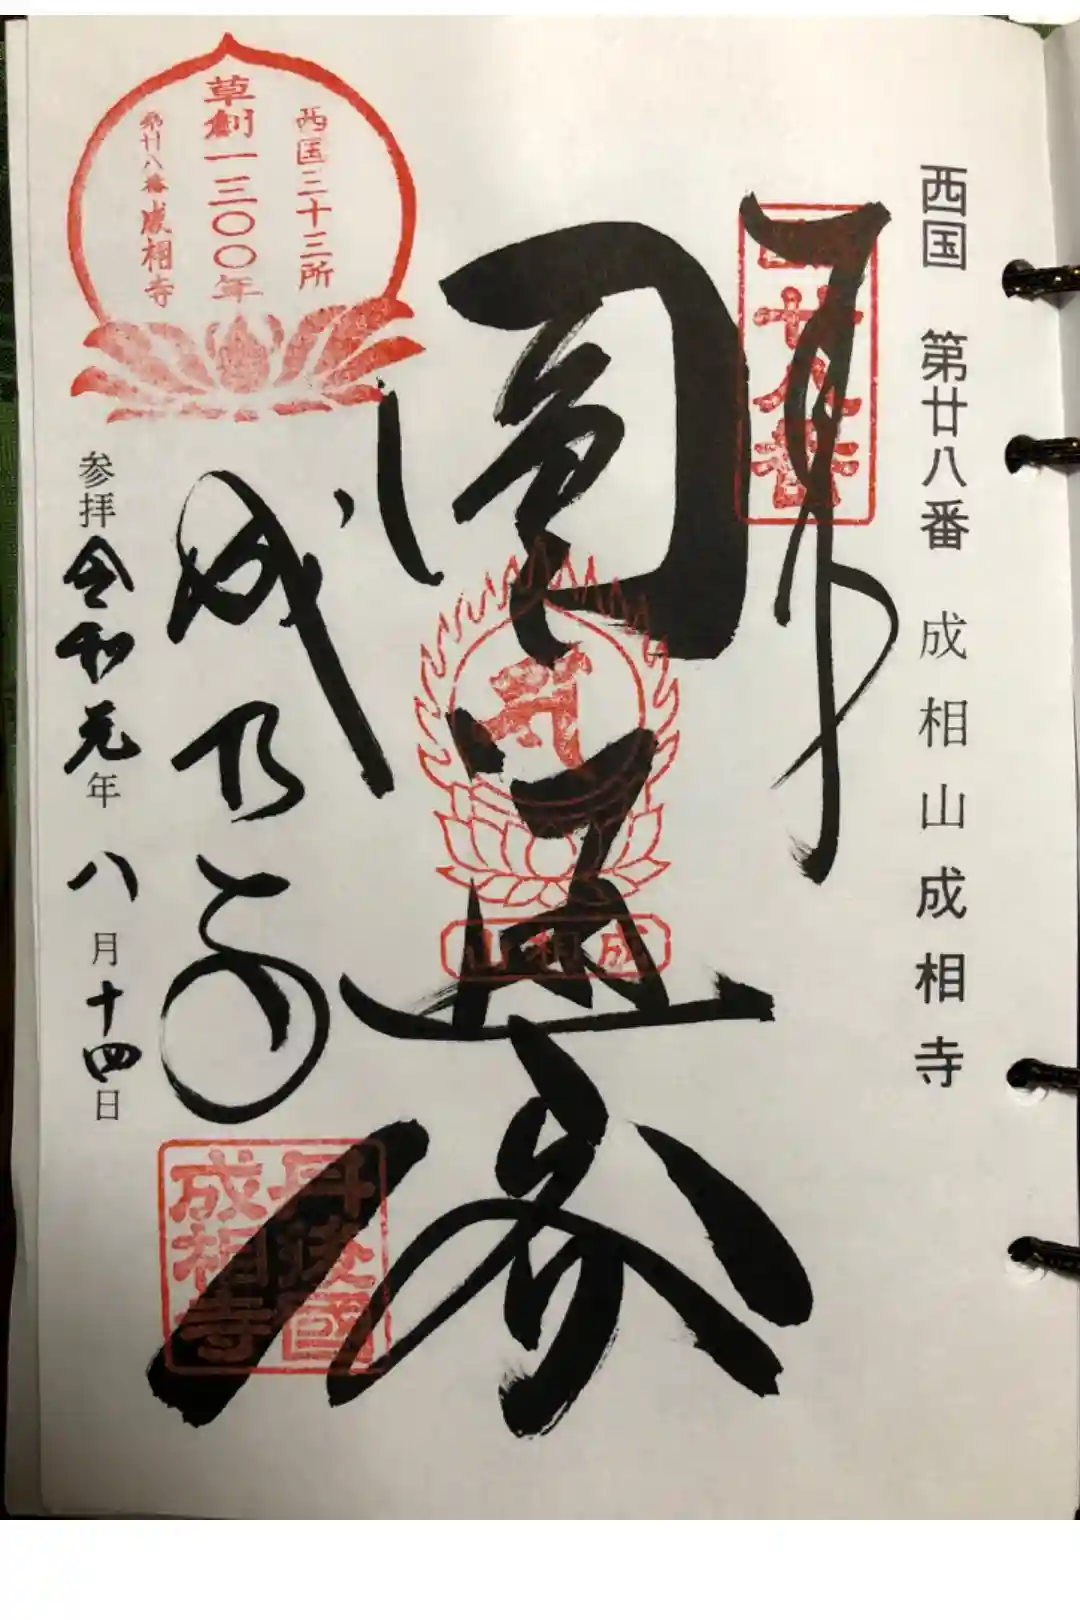 西国 第廿八番 成相山成相寺
奉
廿八番
圓通傢
成相山
成相寺
西国三十三所
草創一三〇〇年
第廿八番成相寺
参拝令和元年八月十四日
丹後國
成相寺